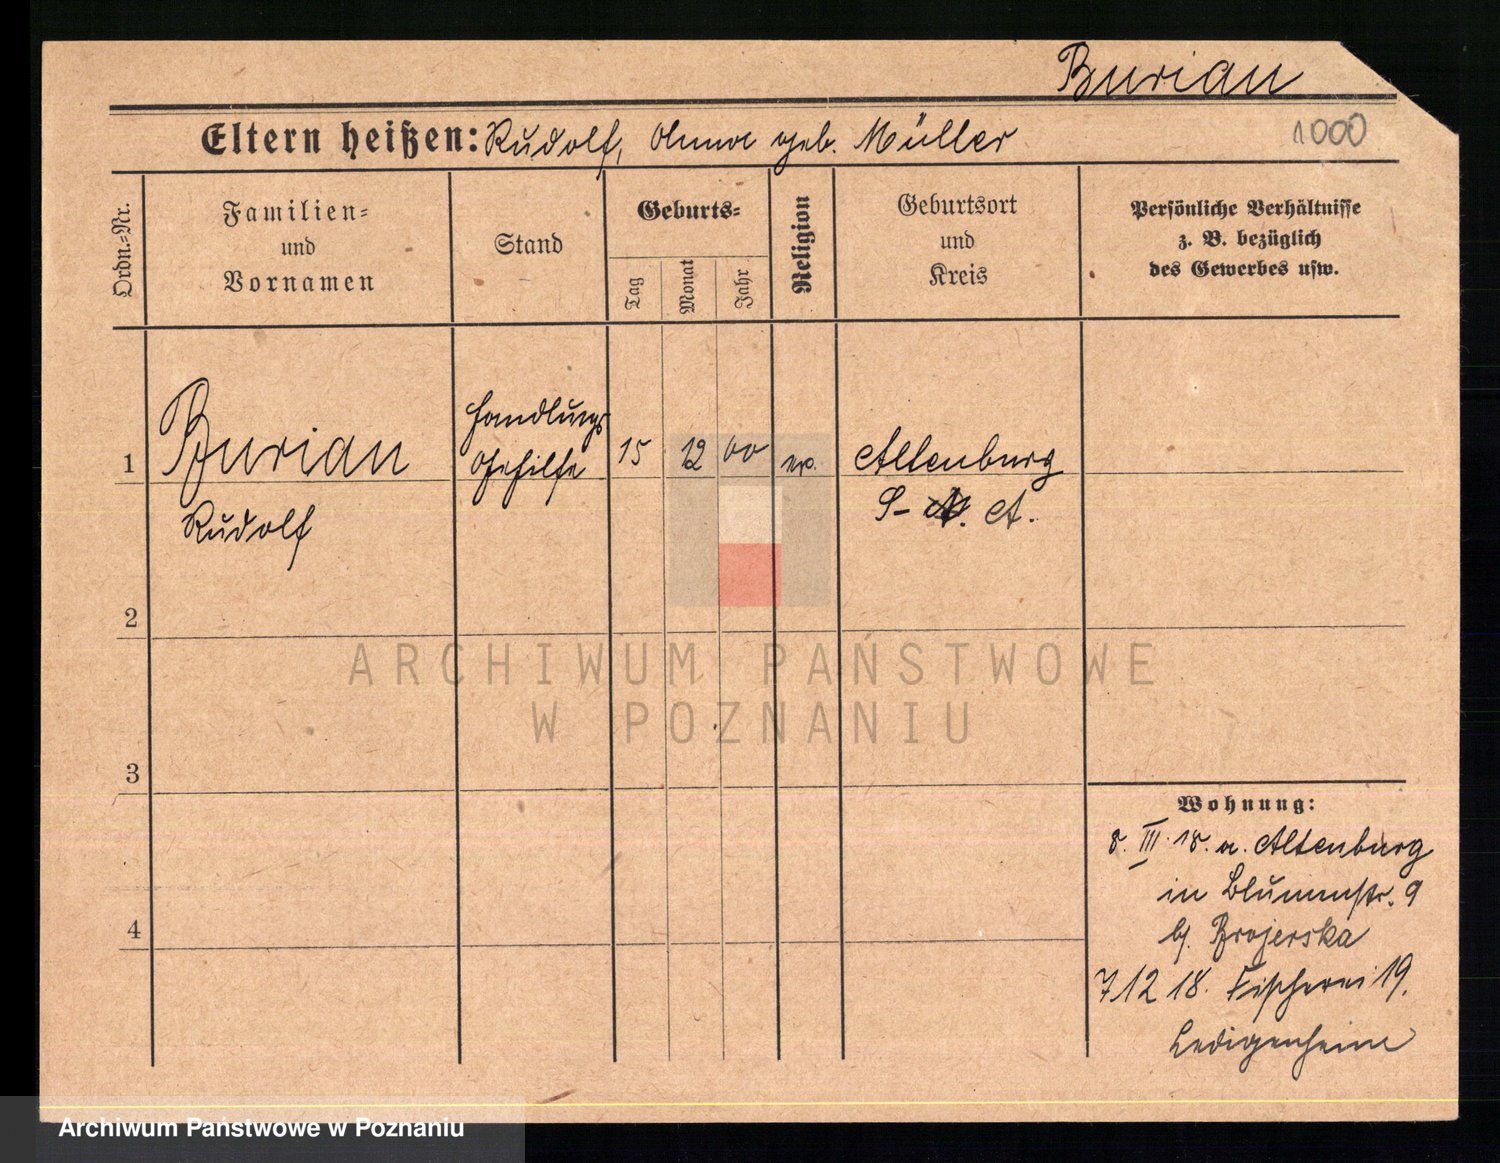 Burian
Eltern heißen: Rudolf, Anna geb. Müller
1000
Ordn.=Nr.
Familien=
und
Vornamen
Stand
Geburts=
Tag
Monat
Jahr
Religion
Geburtsort
und
Kreis
Persönliche Verhältnisse
z. B. bezüglich
des Gewerbes usw.
1
Burian
Rudolf
Handlungs
Gehilfe
15
12
00
ev.
Altenburg
S-A.
2
3
4
Wohnung:
8. III. 18. a. Altenburg
in Blumenstr. 9
bj. Brojerska
7 12 18. Fischerei 19.
Ledigenheim
ARCHIWUM PAŃSTWOWE
W POZNANIU
Archiwum Państwowe w Poznaniu